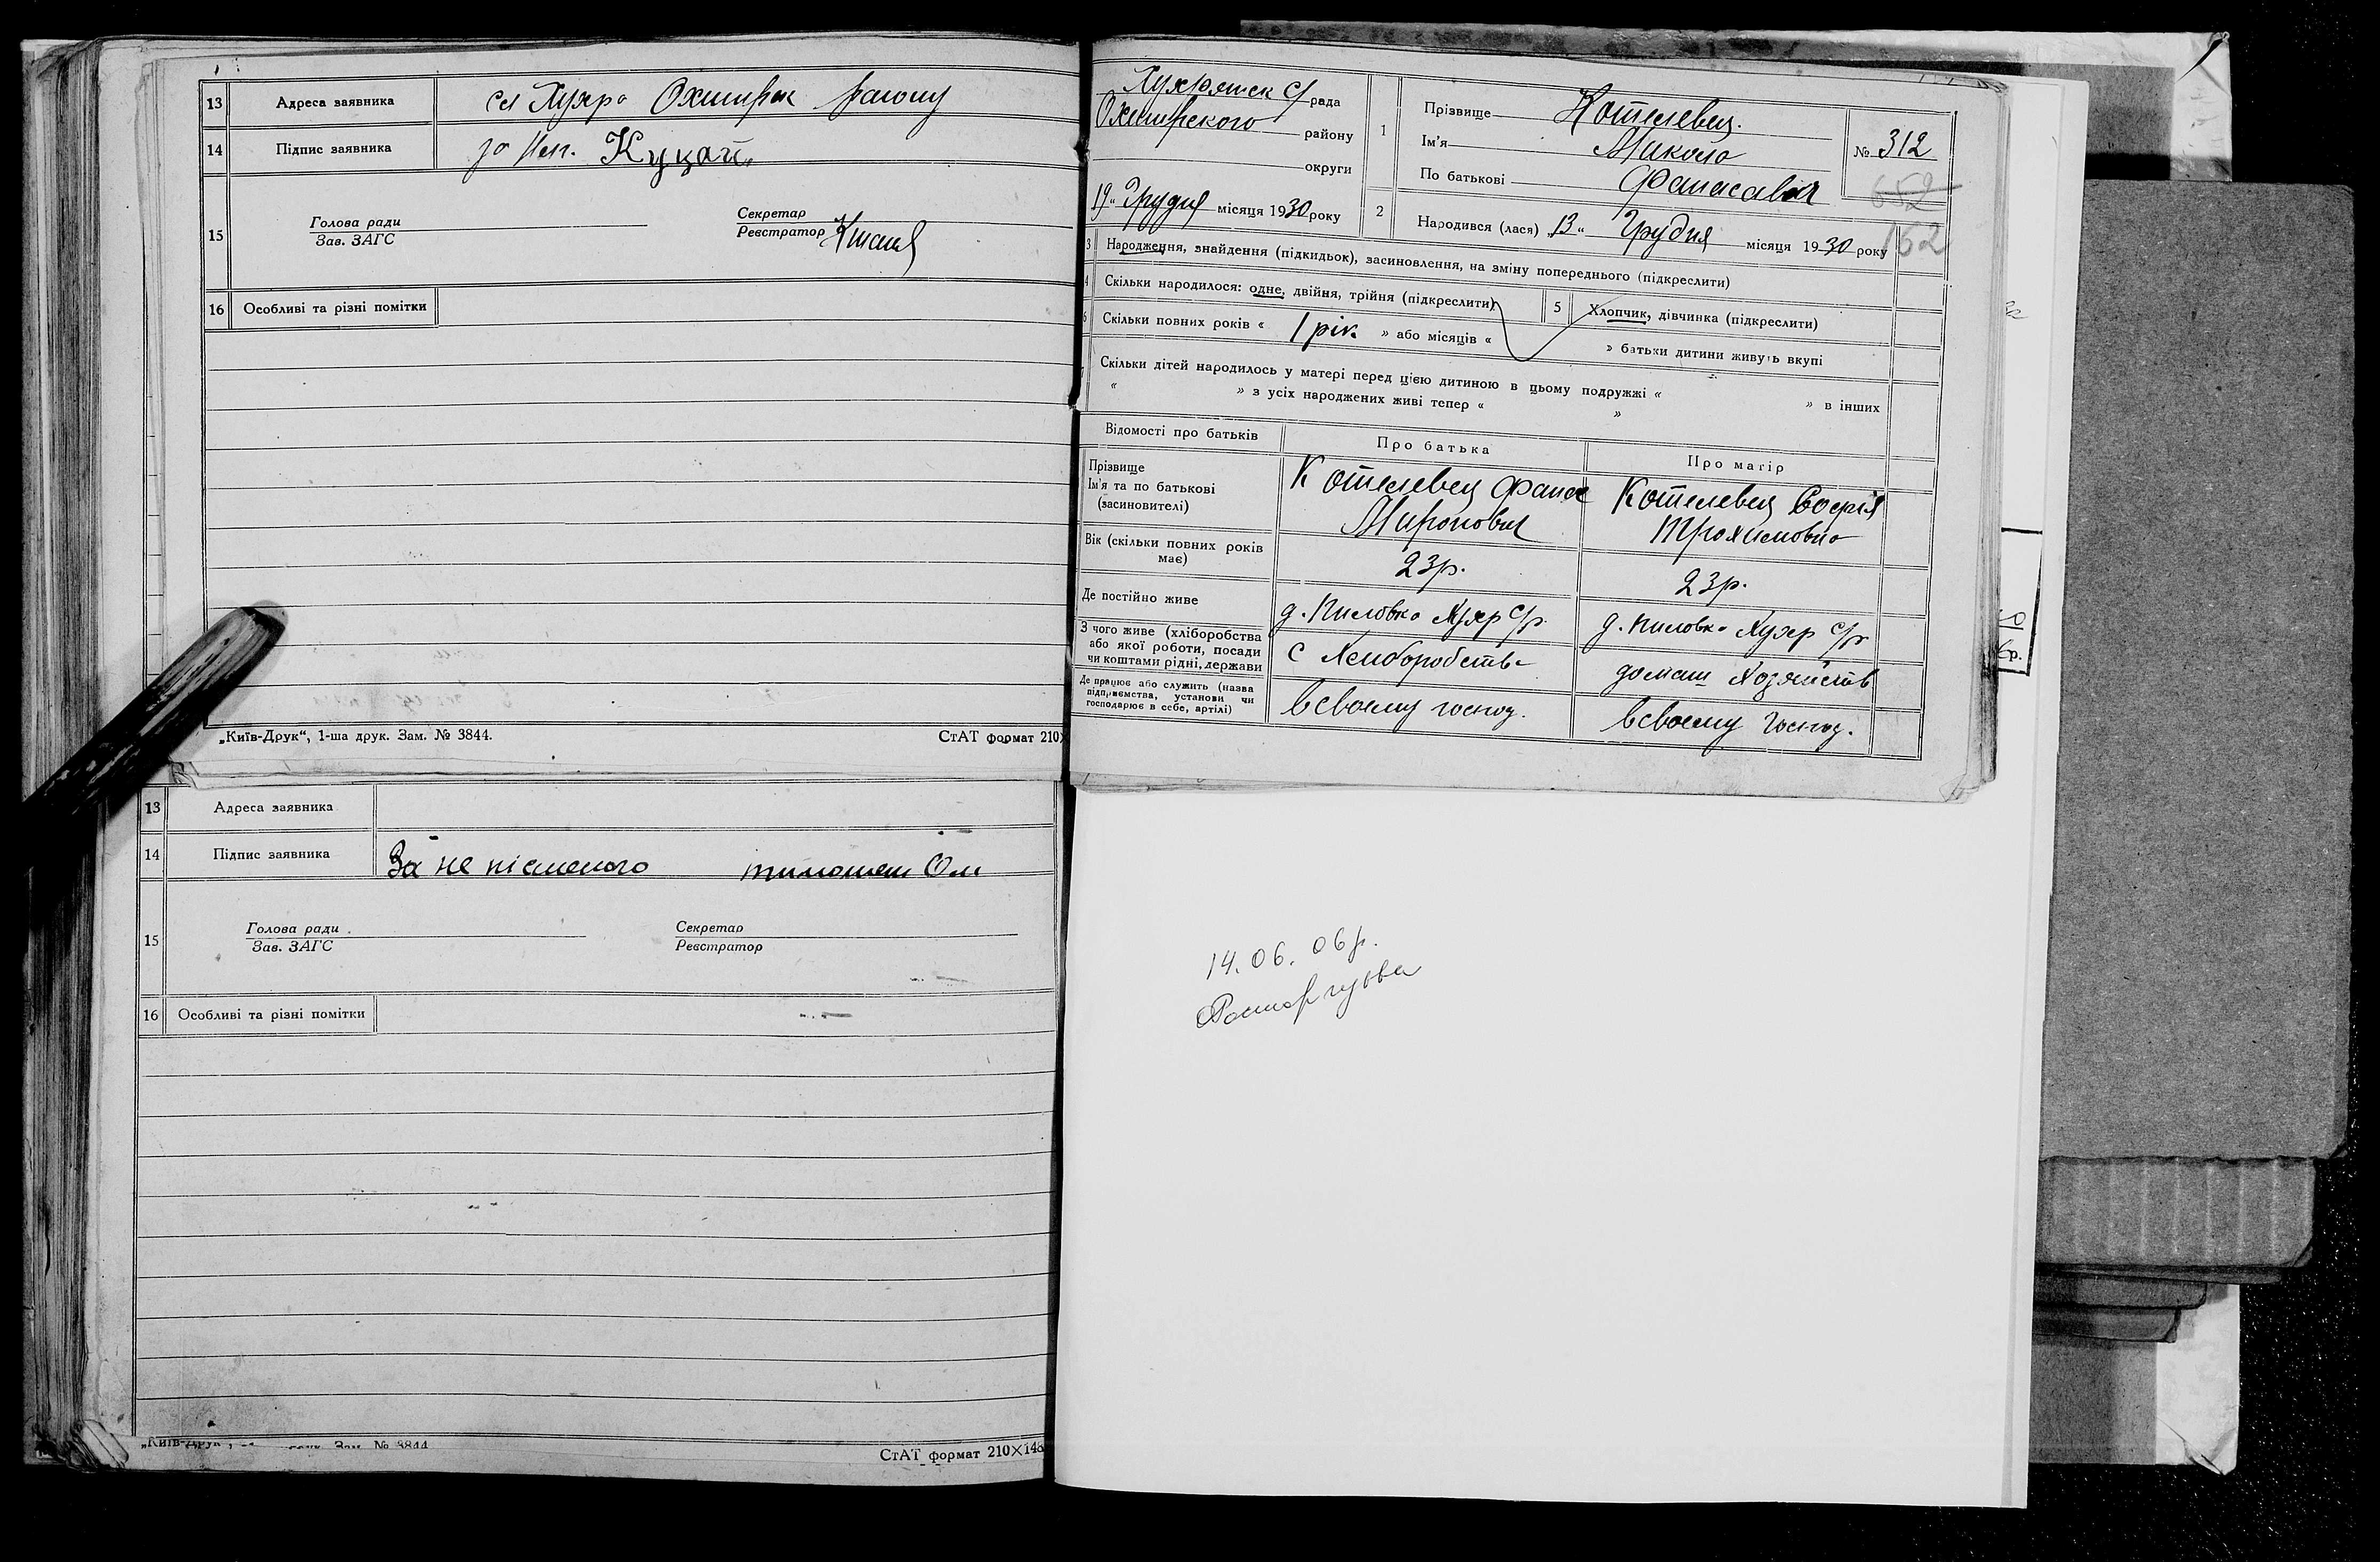 13 Адреса заявника сл Хухро Охтирск району
14 Підпис заявника за Неп. Куцай
15 Голова ради
Зав. ЗАГС
Секретар
Реєстратор
16 Особливі та різні помітки
„Київ-Друк“, 1-ша друк. Зам. № 3844.
СтАТ формат 210×
13 Адреса заявника
14 Підпис заявника За не пісменого
15 Голова ради
Зав. ЗАГС
Секретар
Реєстратор
16 Особливі та різні помітки
Зам. № 3844
СтАТ формат 210×148
Хухрянск С/рада
Охтирского району
округи
19 „ Грудня місяця 1930 року
1 Прізвище Котелевец.
Ім'я Микола
По батькові Фанасавич
№ 312
652
152
2 Народився (лася) „13“ Грудня місяця 1930 року
3 Народження, знайдення (підкидьок), засиновлення, на зміну попереднього (підкреслити)
4 Скільки народилося: одне, двійня, трійня (підкреслити)
5 Хлопчик, дівчинка (підкреслити)
6 Скільки повних років « 1 рік » або місяців « » батьки дитини живуть вкупі
Скільки дітей народилось у матері перед цією дитиною в цьому подружжі « » в інших
« » з усіх народжених живі тепер « »
Відомості про батьків Про батька Про матір
Прізвище
Ім'я та по батькові
(засиновителі)
Котелевец Фанас
Миронович
Котелевец Софія
Трохимовна
Вік (скільки повних років
має)
23р.
23р.
Де постійно живе
д. Пиловка Хухр С/р.
д. Пиловка Хухр С/р
З чого живе (хліборобства
або якої роботи, посади
чи коштами рідні, держави
С Хлиборобства
домаш Хозяйств
Де працює або служить (назва
підприємства, установи чи
господарює в себе, артілі)
всвоему господ.
всвоему господ.
14.06.06р.